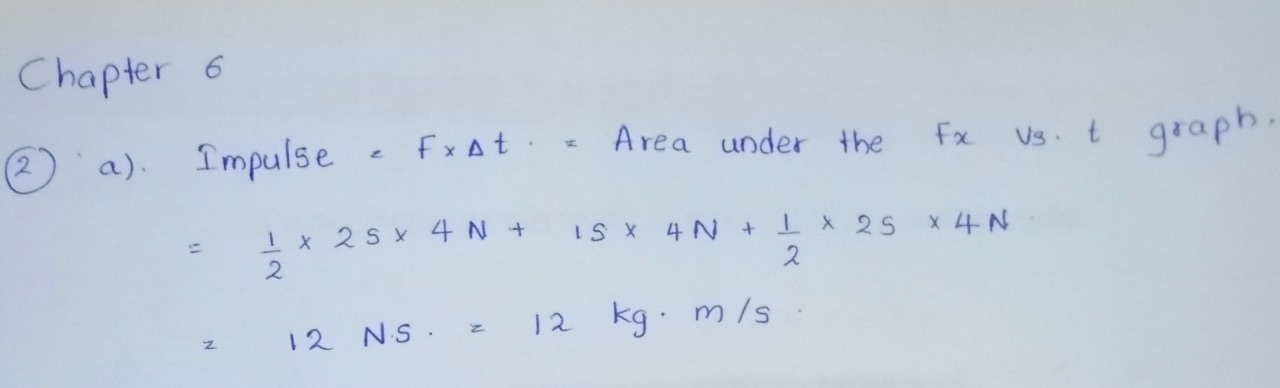 Chapter 6
② a). Impulse = F x Δt. = Area under the Fx Vs. t graph.
= 1/2 x 2s x 4N + 1s x 4N + 1/2 x 2s x 4N
= 12 N.s. = 12 kg. m/s.